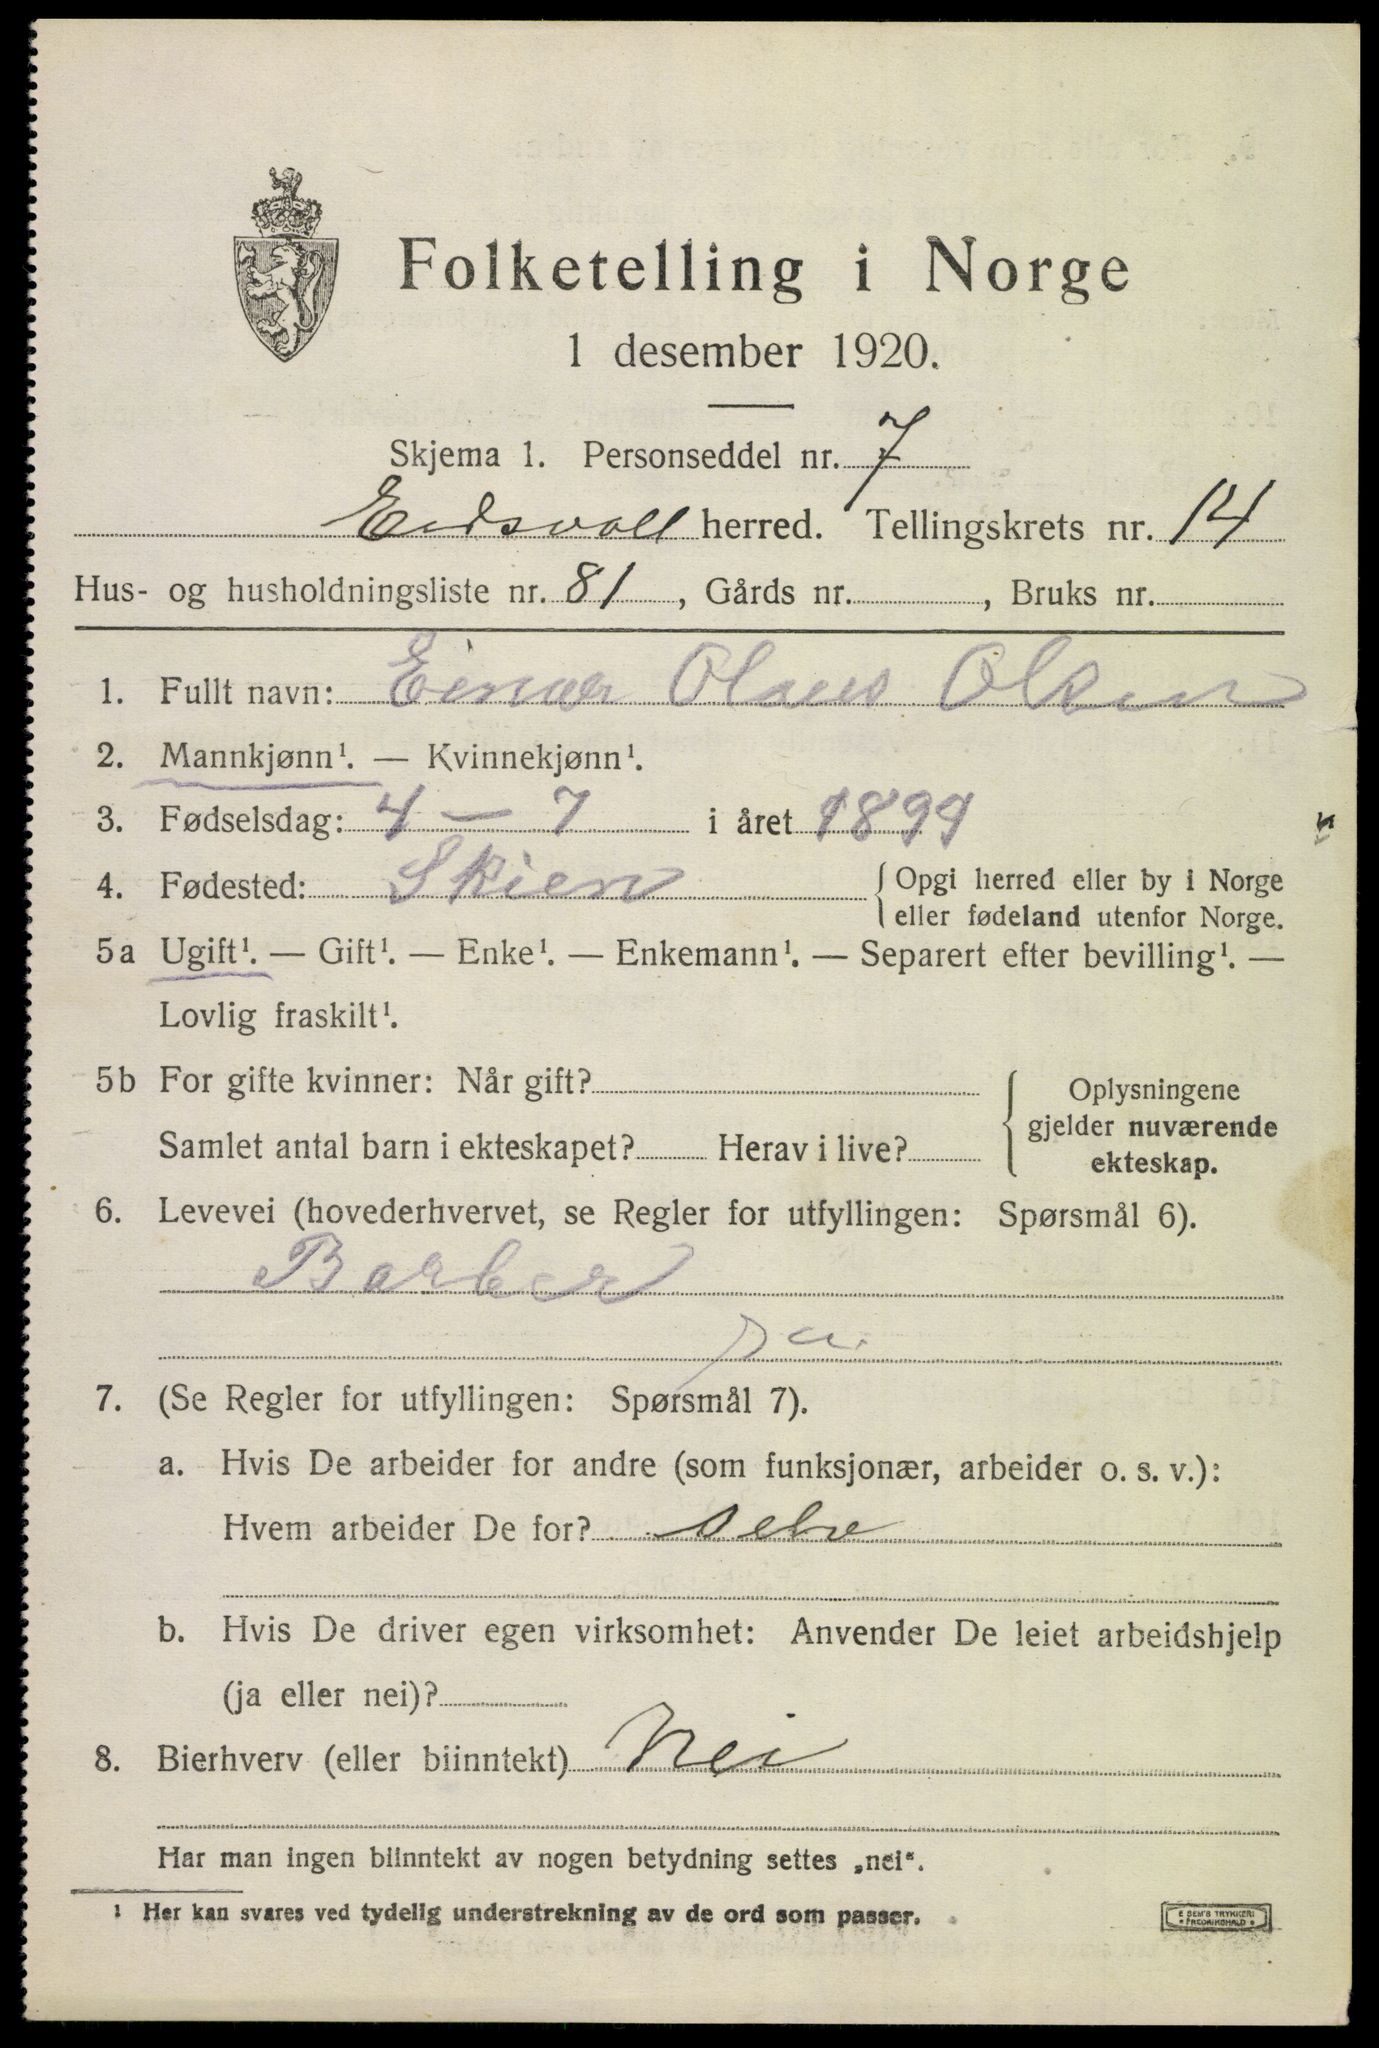 Folketelling i Norge
1 desember 1920.
Skjema 1. Personseddel nr. 7
Eidsvoll herred. Tellingskrets nr. 14
Hus- og husholdningsliste nr. 81, Gårds nr. , Bruks nr.
1. Fullt navn: Einar Olaus Olsen
2. Mannkjønn¹. — Kvinnekjønn¹.
3. Fødselsdag: 4 — 7 i året 1899
4. Fødested: Skien {Opgi herred eller by i Norge
eller fødeland utenfor Norge.
5a Ugift¹. — Gift¹. — Enke¹. — Enkemann¹. — Separert efter bevilling¹. —
Lovlig fraskilt¹.
5b For gifte kvinner: Når gift?
Samlet antal barn i ekteskapet? Herav i live?
{ Oplysningene
gjelder nuværende
ekteskap.
6. Levevei (hovederhvervet, se Regler for utfyllingen: Spørsmål 6).
Barber
7. (Se Regler for utfyllingen: Spørsmål 7).
a. Hvis De arbeider for andre (som funksjonær, arbeider o. s. v.):
Hvem arbeider De for?
b. Hvis De driver egen virksomhet: Anvender De leiet arbeidshjelp
(ja eller nei)?
8. Bierhverv (eller biinntekt) Nei
Har man ingen biinntekt av nogen betydning settes „nei“.
¹ Her kan svares ved tydelig understrekning av de ord som passer.
E SEM'S TRYKKERI
FREDRIKSHALD